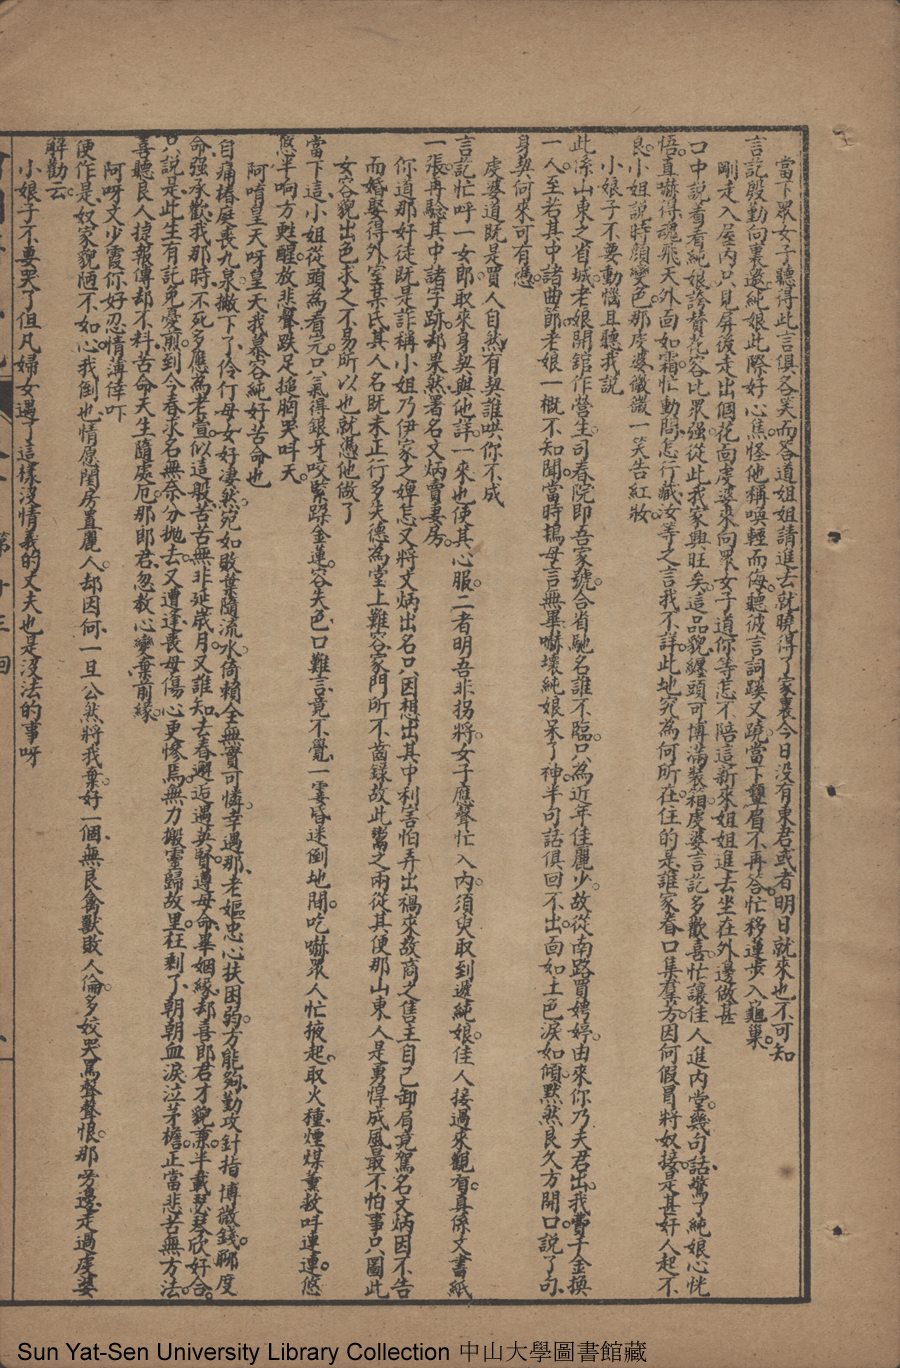 當下眾女子聽得此言俱各笑而答道姐姐請進去就曉得了家裏今日没有東君或者明日就來也不可知
言訖殷勤向裏邀純娘此際好心焦怪他稱喚輕而侮聽彼言詞蹊又蹺當下顰眉不再答忙移蓮步入龜巢
剛走入屋内只見屏後走出個花向虔婆來向眾女子道你等怎不陪這新來姐姐進去坐在外邊做甚
口中説看看純娘誇賛花容比眾强從此我家興旺矣這品貌纏頭可博滿裝箱虔婆言訖多歡喜忙讓佳人進内堂幾句話驚了純娘心恍
悟直嚇得魂飛天外面如霜忙動問怎行藏汝等之言我不詳此地究為何所在住的是誰家眷口集羣芳因何假冒將奴接是甚奸人起不
良小姐説時顔變色那虔婆微微一笑告紅妝
小娘子不要動惱且聽我説
此係山東之省城老娘開舘作營生司春院即吾家號合省馳名誰不臨只為近年佳麗少故從南路買娉婷由來你乃夫君出我費千金換
一人至若其中諸曲節老娘一概不知聞當時鴇母言無畢嚇壞純娘呆了神半句話俱回不出面如土色淚如傾默然良久方開口説了句
身契何來可有憑
虔婆道既是買人自然有契誰哄你不成
言訖忙呼一女郎取來身契與他詳一來也使其心服二者明吾非拐將女子應聲忙入内須臾取到遞純娘佳人接過來觀看真係文書紙
一張再驗其中諸字跡却果然署名文炳賣妻房
你道那奸徒既是詐稱小姐乃伊家之婢怎又將文炳出名只因想出其中利害怕弄出禍來故商之售主自己卸肩竟駕名文炳因不告
而婚娶得外室葉氏其人名既未正行多失德為堂上難容家門所不齒錄故此鬻之兩從其便那山東人是勇悍成風最不怕事只圖此
女容貌出色求之不易所以也就憑他做了
當下這小姐從頭為看完只氣得銀牙咬緊跺金蓮容失色口難言竟不覺一霎昏迷倒地間吃嚇眾人忙掖起取火種煙煤薰救呼連連悠
悠半响方甦醒放悲聲跌足搥胸哭呌天
阿唷皇天呀皇天我慕容純好苦命也
自痛椿庭喪九泉撇下了伶仃母女好凄然宛如敗葉隨流水倚賴全無實可憐幸遇那老嫗忠心扶困弱方能夠勤攻針指博微錢聊度
命强承歡我那時不死多應為老萱似這般苦苦無非延歲月又誰知去春邂逅遇英賢遵母命畢姻緣却喜郎君才貌兼半載瑟琴欣好合
只説是此生有託免憂煎到今春求名無奈分拋去又遭逢喪母傷心更慘焉無力搬靈歸故里枉剩了朝朝血淚泣茅檐正當悲苦無方法
喜聽良人㨗報傳却不料苦命天生隨處厄那郎君忽教心變棄前緣
阿呀文少霞你好忍情薄倖吓
便作是奴家貌陋不如心我倒也情愿閨房置麗人却因何一旦公然將我棄好一個無良禽獸敗人倫多姣哭罵聲聲恨那旁邊走過虔婆
解勸云
小娘子不要哭了但凡婦女遇了這樣沒情義的丈夫也是沒法的事呀
第十三回
Sun Yat-Sen University Library Collection 中山大學圖書館藏